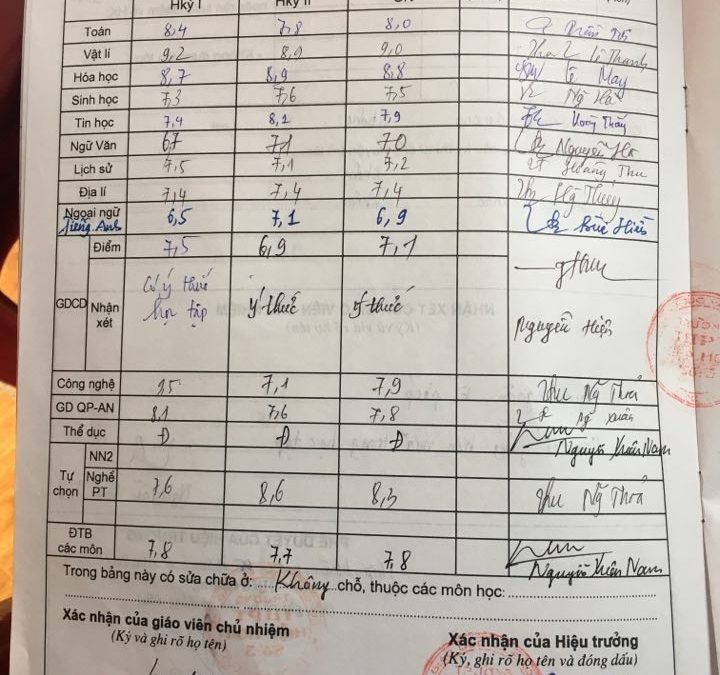 Hkỳ I Hkỳ II
Toán 8,4 7,8 8,0
Vật lí 9,2 8,9 9,0 Lê Thanh
Hóa học 8,7 8,9 8,8 Lê May
Sinh học 7,3 7,6 7,5 Ng Hà
Tin học 7,4 8,1 7,9
Ngữ Văn 6,7 7,1 7,0 Nguyễn
Lịch sử 7,5 7,1 7,2 Hoàng Thu
Địa lí 7,4 7,4 7,4
Ngoại ngữ 6,5 7,1 6,9
Tiếng Anh
Điểm 7,5 6,9 7,1
GDCD Nhận xét Có ý thức học tập ý thức ý thức
Nguyễn Hiện
Công nghệ 7,1 7,9 Thu Ng Thoả
GD QP-AN 8,1 7,6 7,8
Thể dục Đ Đ Đ
Nguyễn Xuân Nam
Tự chọn NN2
Nghề PT 7,6 8,6 8,3 Thu Ng Thoả
ĐTB các môn 7,8 7,7 7,8
Nguyễn Xuân Nam
Trong bảng này có sửa chữa ở: Không chỗ, thuộc các môn học:
Xác nhận của giáo viên chủ nhiệm
(Ký và ghi rõ họ tên)
Xác nhận của Hiệu trưởng
(Ký, ghi rõ họ tên và đóng dấu)